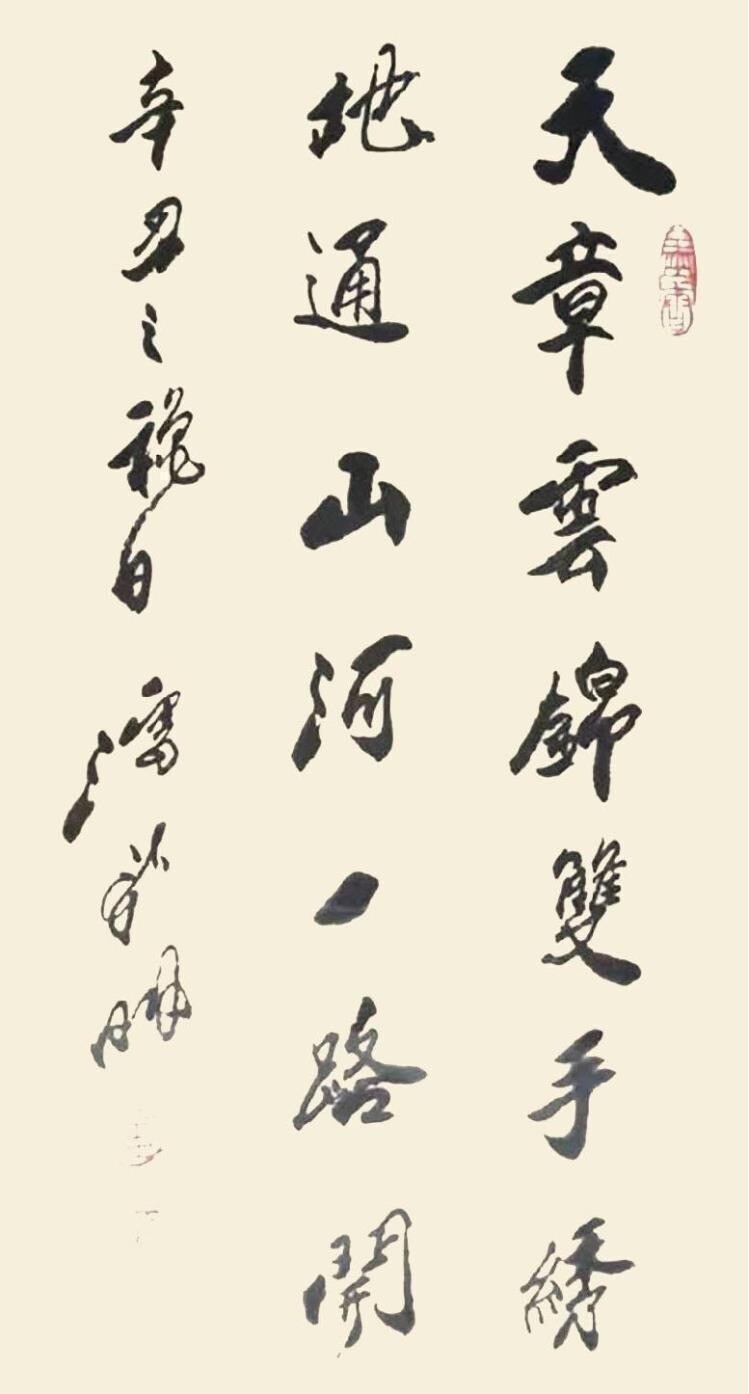 天章雲錦雙手綉
地通山河一路開
辛丑之穐日